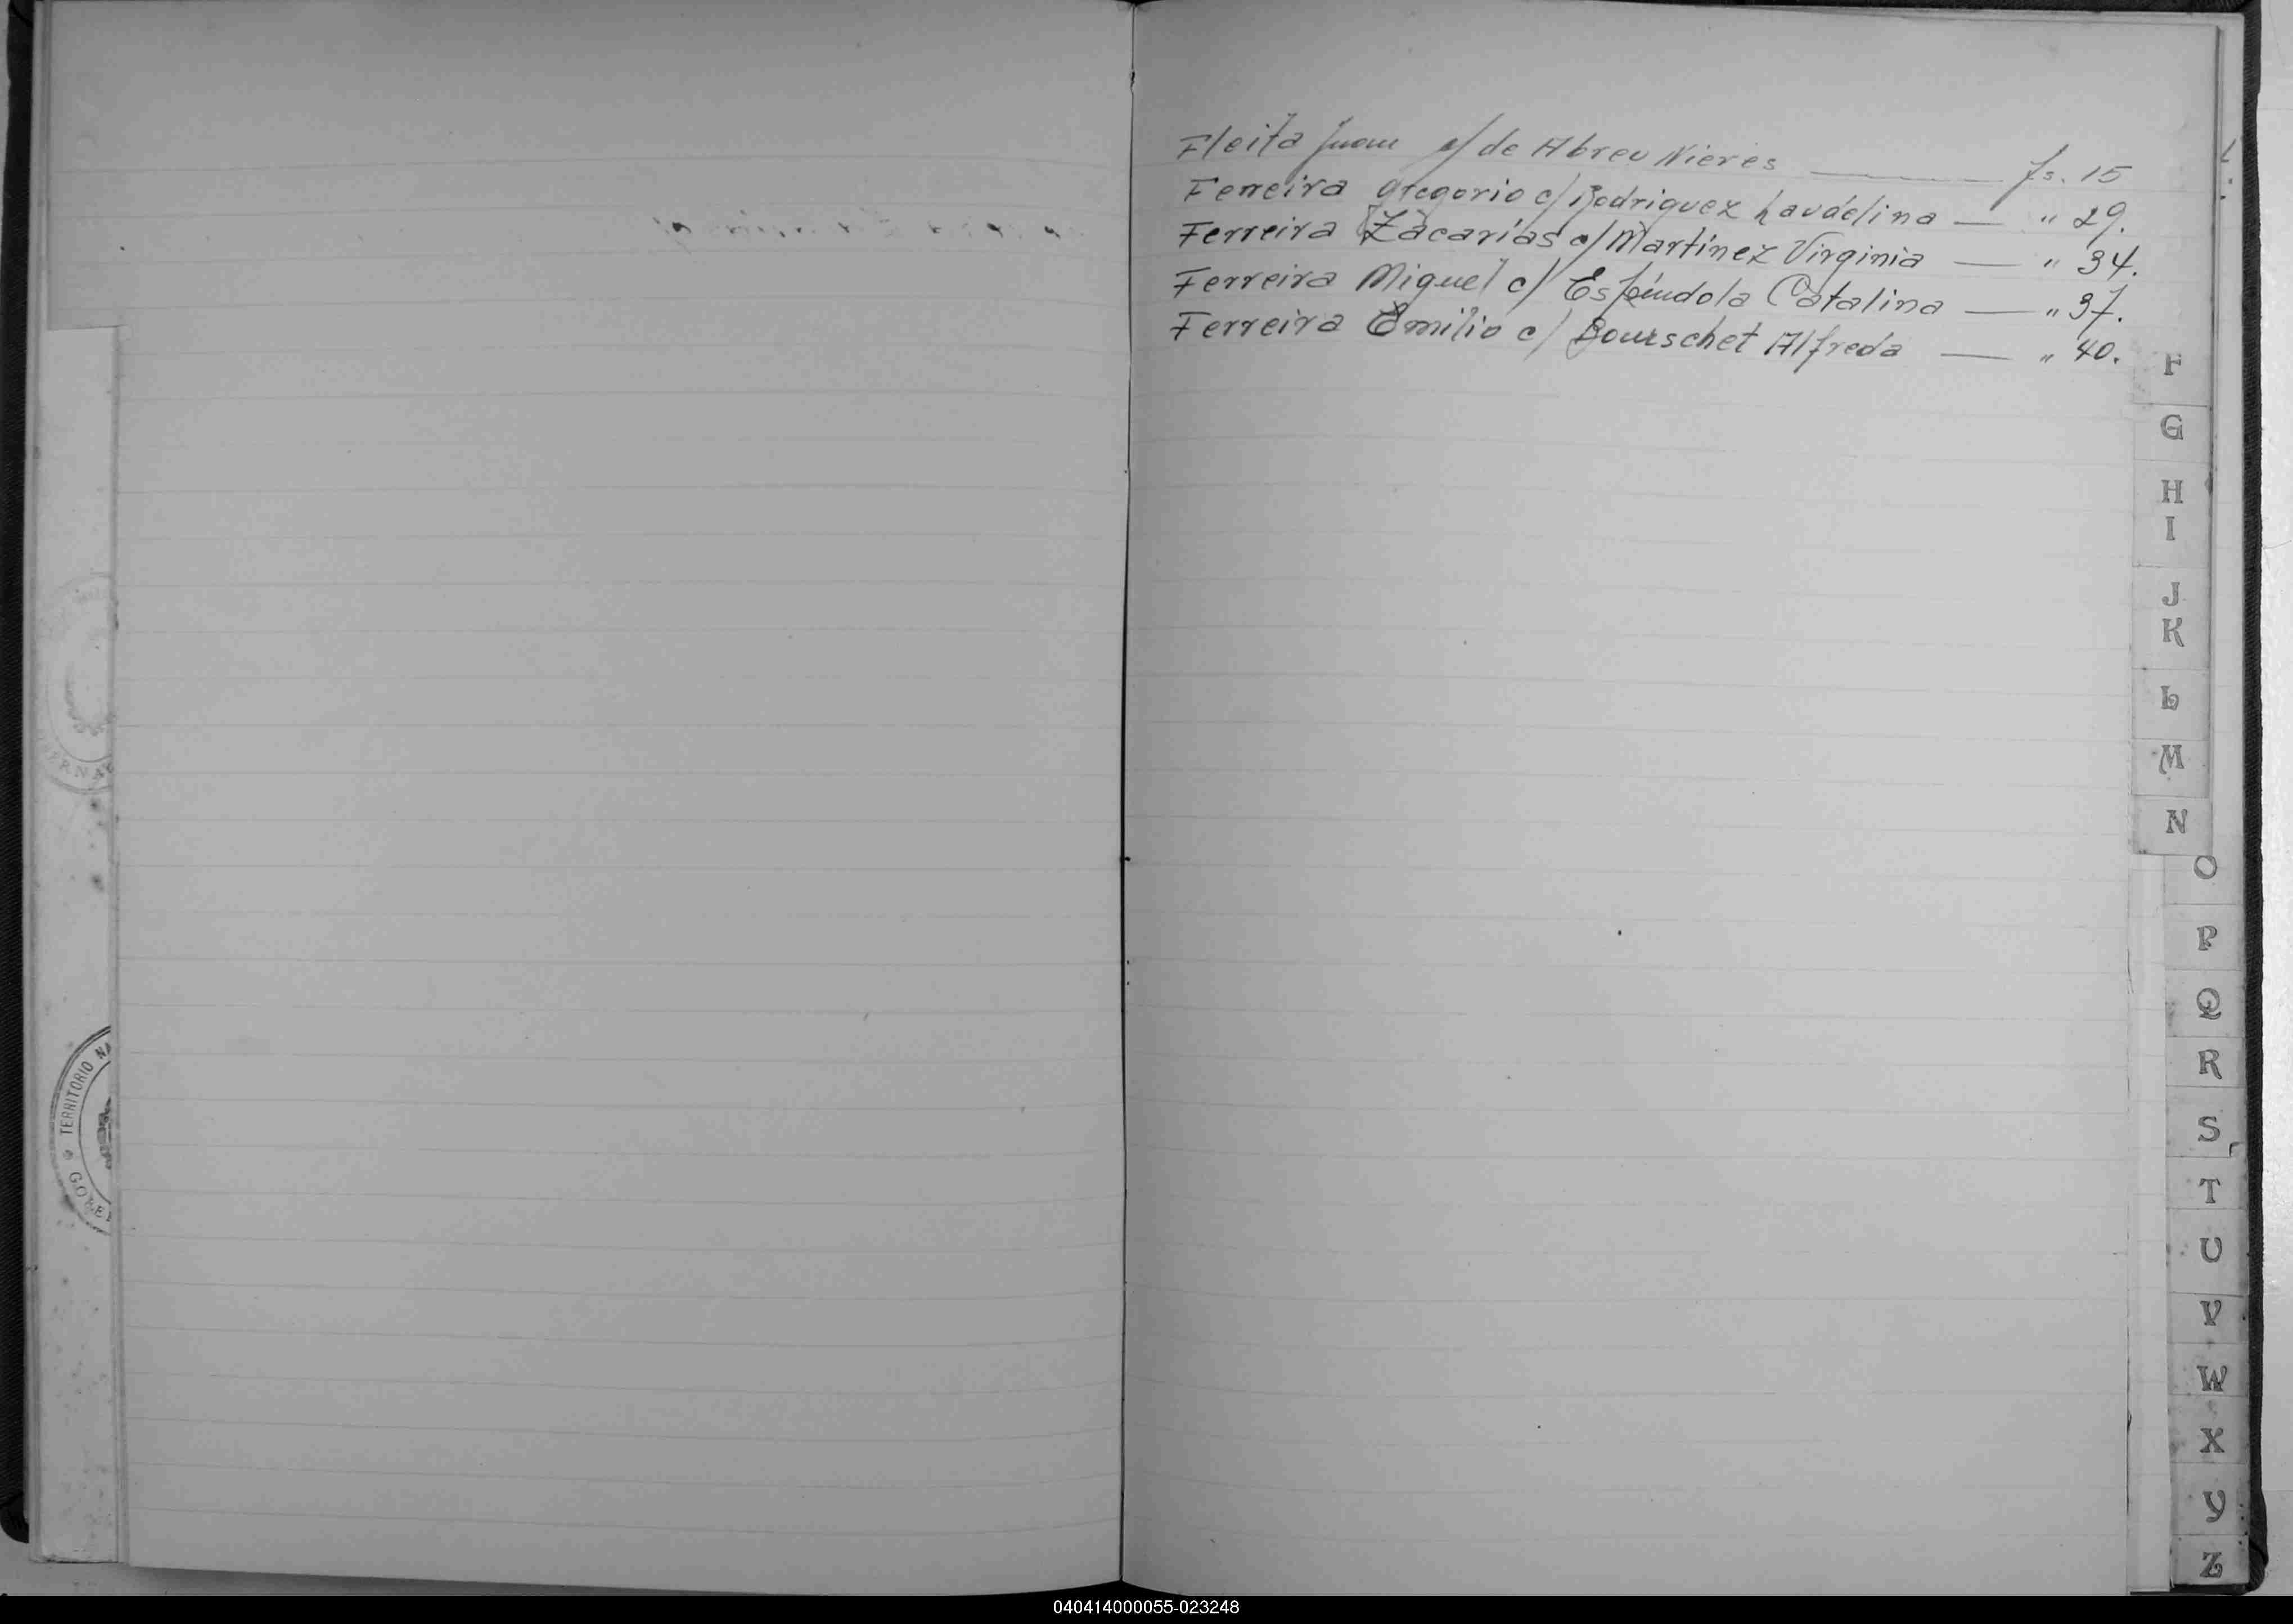 Fleita Juan c/ de Abreu Nieves fs. 15
Ferreira Gregorio c/ Rodriguez Laudelina — " 29.
Ferreira Zacarías c/ Martínez Virginia — " 34.
Ferreira Miguel c/ Espíndola Catalina — " 37.
Ferreira Emilio c/ Bourschet Alfreda — " 40.
F
G
H
I
J
K
L
M
N
O
P
Q
R
S
T
U
V
W
X
Y
Z
TERRITORIO NA
GOBE
ERNA
040414000055-023248